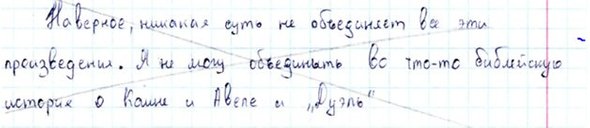 Наверное, никакая суть не объединяет все эти
произведения. Я не могу объединить во что-то библейскую
историю о Каине и Авеле и „Дуэль"